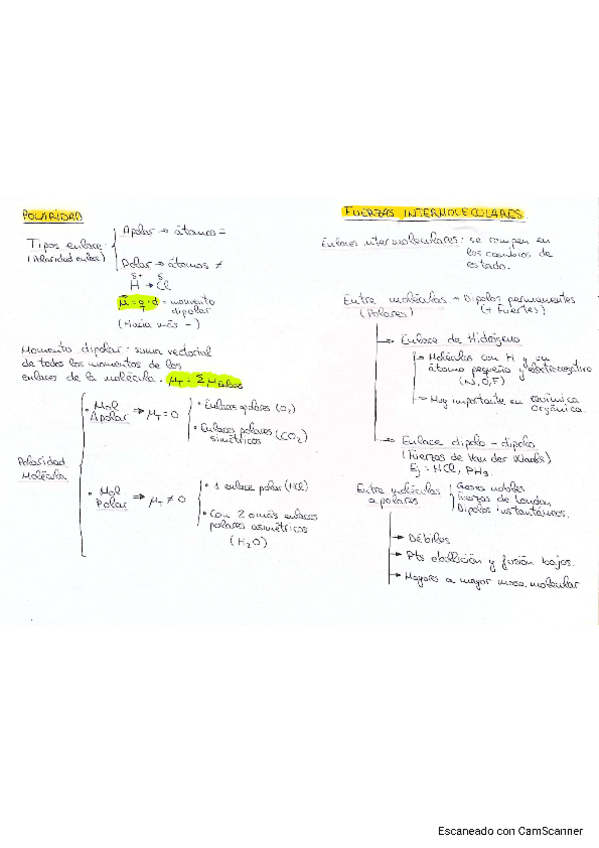 POLARIDAD
Tipos enlace:
(Polaridad enlace)
Apolar → átomos =
Polar → átomos ≠
δ+ δ-
H → Cl
μ = q · d = momento
dipolar
(Hacia más -)
Momento dipolar: suma vectorial
de todos los momentos de los
enlaces de la molécula. μT = Σ μenlaces
Polaridad
Molécula
• Mol
Apolar → μT = 0
• Enlaces apolares (O2)
• Enlaces polares
simétricos (CO2)
• Mol
Polar → μT ≠ 0
• 1 enlace polar (HCl)
• Con 2 o más enlaces
polares asimétricos
(H2O)
FUERZAS INTERMOLECULARES
Enlaces intermoleculares: se rompen en
los cambios de
estado.
Entre moléculas → Dipolos permanentes
(Polares) (+ Fuertes)
→ Enlace de Hidrógeno
→ Moléculas con H y un
átomo pequeño y electronegativo
(N, O, F)
→ Muy importante en química
orgánica.
→ Enlace dipolo - dipolo
(Fuerzas de Van der Waals)
Ej: HCl, PH3
Entre moléculas
apolares
Gases nobles
Fuerzas de London
Dipolos instantáneos.
→ Débiles
→ Pts ebullición y fusión bajos.
→ Mayores a mayor masa molecular
Escaneado con CamScanner